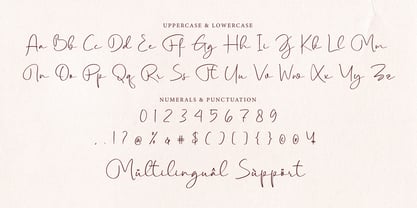 UPPERCASE & LOWERCASE
Aa Bb Cc Dd Ee Ff Gg Hh Ii Jj Kk Ll Mm
Nn Oo Pp Qq Rr Ss Tt Uu Vv Ww Xx Yy Zz
NUMERALS & PUNCTUATION
0 1 2 3 4 5 6 7 8 9
. , ! ? @ % & # $ ( ) ( ) { }
Múltilinguâl Sùppört